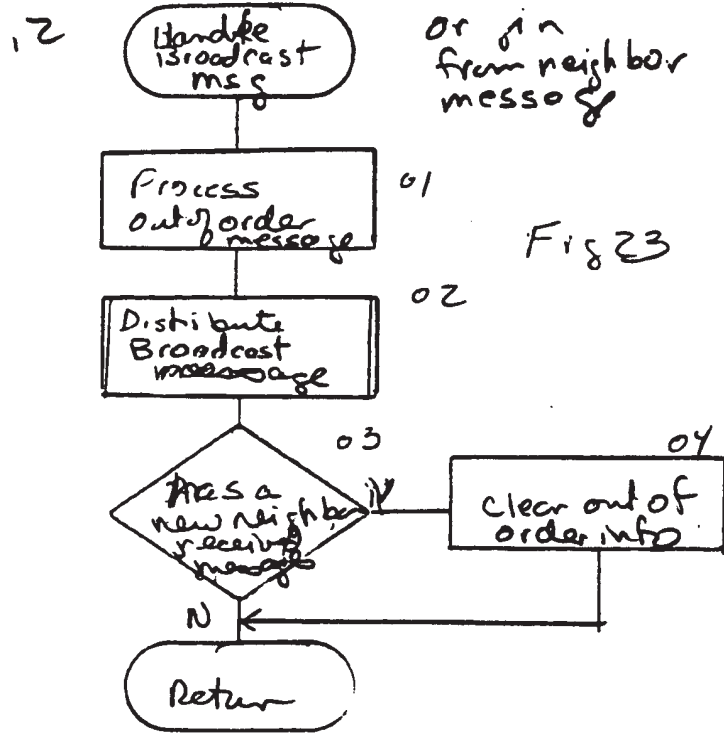 ,2
Handle
Broadcast
msg
origin
from neighbor
message
Process
out of order
message
01
Fig 23
02
Distribute
Broadcast
message
03
Has a
new neighbor
received
message
Y
04
Clear out of
order info
N
Return